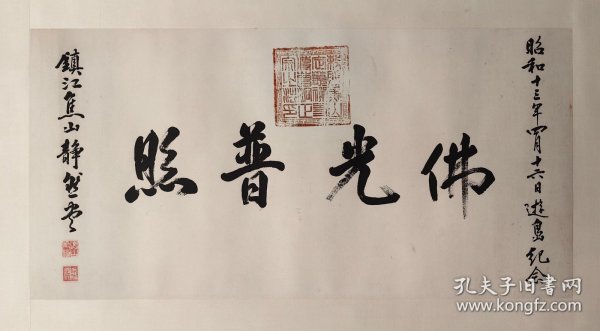 昭和十三年四月十六日遊島紀念
佛光普照
鎮江焦山静然书
孔夫子旧书网
www.kongfz.com